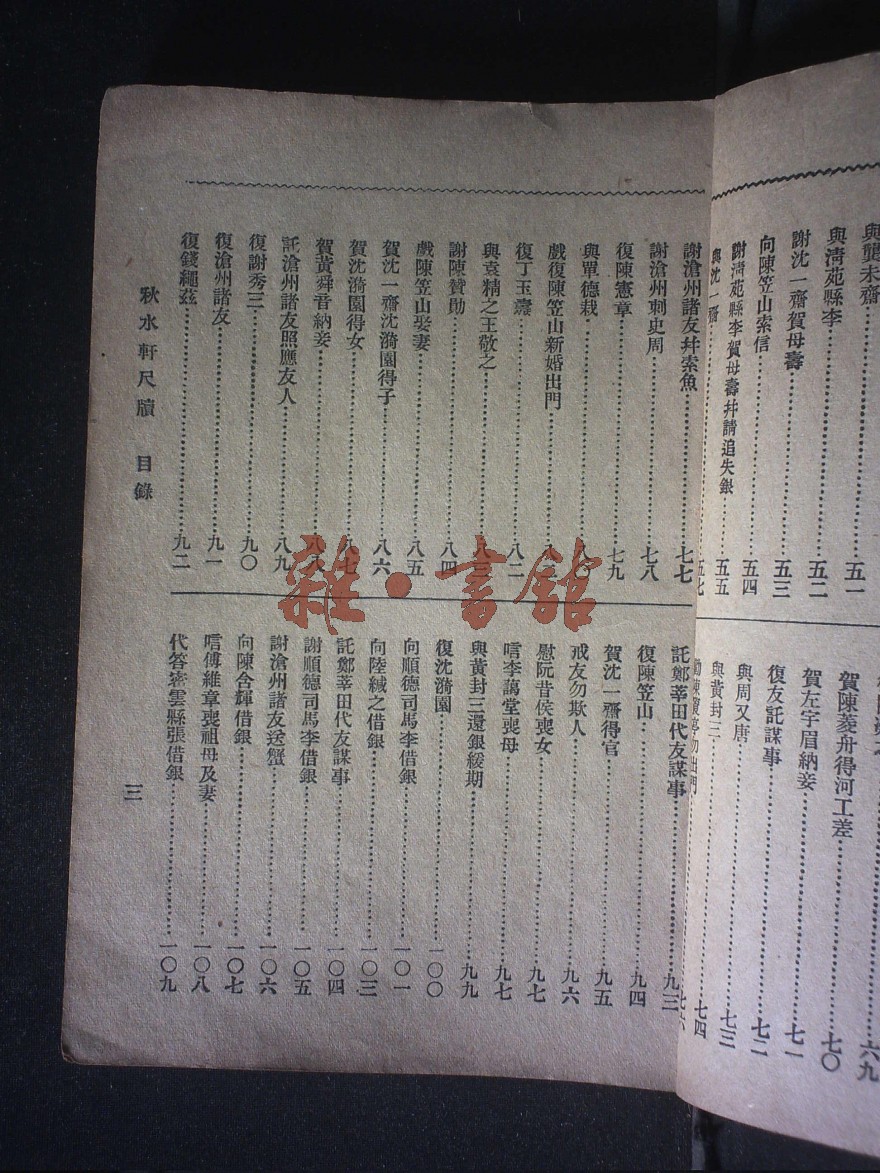 與龔未齋⋯⋯五一
與淸苑縣李⋯⋯五二
謝沈一齋賀母壽⋯⋯五三
向陳笠山索信⋯⋯五四
謝淸苑縣李賀母壽幷請追失銀⋯⋯五五
與沈一齋⋯⋯五七
⋯⋯六九
賀陳菱舟得河工差⋯⋯七〇
賀左宇眉納妾⋯⋯七一
復友託謀事⋯⋯七二
與周又唐⋯⋯七三
與黃封三⋯⋯七四
勸陳寶亭勿出門⋯⋯七六
謝滄州諸友幷索魚⋯⋯七七
謝滄州刺史周⋯⋯七八
復陳憲章⋯⋯七九
與單德栽⋯⋯八
戲復陳笠山新婚出門⋯⋯八
復丁玉巖⋯⋯八二
與袁精之王敬之⋯⋯八三
謝陳贊勛⋯⋯八四
戲陳笠山娶妻⋯⋯八五
賀沈一齋沈漪園得子⋯⋯八六
賀沈漪園得女⋯⋯八七
賀黃舜音納妾⋯⋯八八
託滄州諸友照應友人⋯⋯八九
復謝秀三⋯⋯九〇
復滄州諸友⋯⋯九一
復錢繩茲⋯⋯九二
託鄭莘田代友謀事⋯⋯九三
復陳笠山⋯⋯九四
賀沈一齋得官⋯⋯九五
戒友勿欺人⋯⋯九六
慰阮昔侯喪女⋯⋯九七
唁李藹堂喪母⋯⋯九七
與黃封三還銀緩期⋯⋯九九
復沈漪園⋯⋯一〇〇
向順德司馬李借銀⋯⋯一〇一
向陸緘之借銀⋯⋯一〇三
託鄭莘田代友謀事⋯⋯一〇四
謝順德司馬李借銀⋯⋯一〇五
謝滄州諸友送蟹⋯⋯一〇六
向陳含輝借銀⋯⋯一〇七
唁傅維章喪祖母及妻⋯⋯一〇八
代答密雲縣張借銀⋯⋯一〇九
秋水軒尺牘 目錄
三
雜·書館